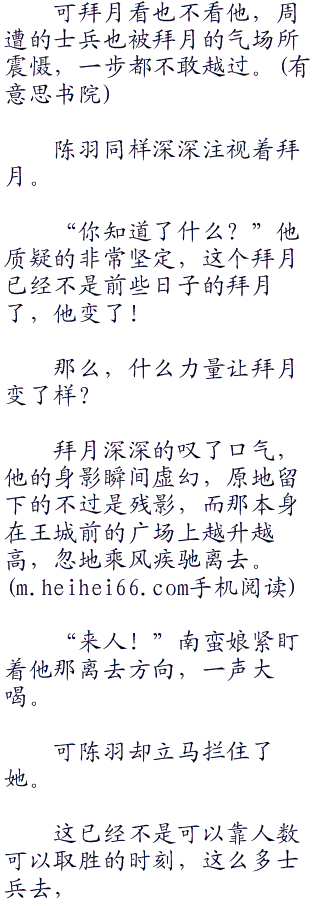 可拜月看也不看他，周
遭的士兵也被拜月的气场所
震慑，一步都不敢越过。(有
意思书院)
陈羽同样深深注视着拜
月。
“你知道了什么？”他
质疑的非常坚定，这个拜月
已经不是前些日子的拜月
了，他变了！
那么，什么力量让拜月
变了样？
拜月深深的叹了口气，
他的身影瞬间虚幻，原地留
下的不过是残影，而那本身
在王城前的广场上越升越
高，忽地乘风疾驰离去。
(m.heihei66.com手机阅读)
“来人！”南蛮娘紧盯
着他那离去方向，一声大
喝。
可陈羽却立马拦住了
她。
这已经不是可以靠人数
可以取胜的时刻，这么多士
兵去，